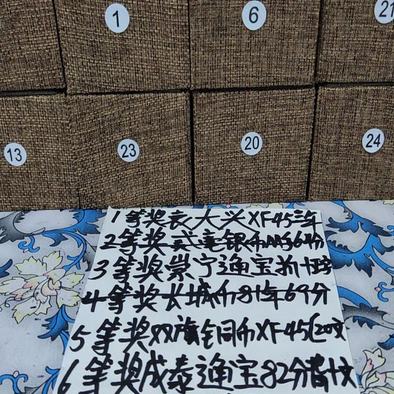 1
6
21
13
23
20
24
1等奖袁大头XF45三年
2等奖武毫银币MS64分
3等奖崇宁通宝折十
4等奖长城币81年69分
5等奖双旗铜币XF45(20文
6等奖咸泰通宝82分背十文